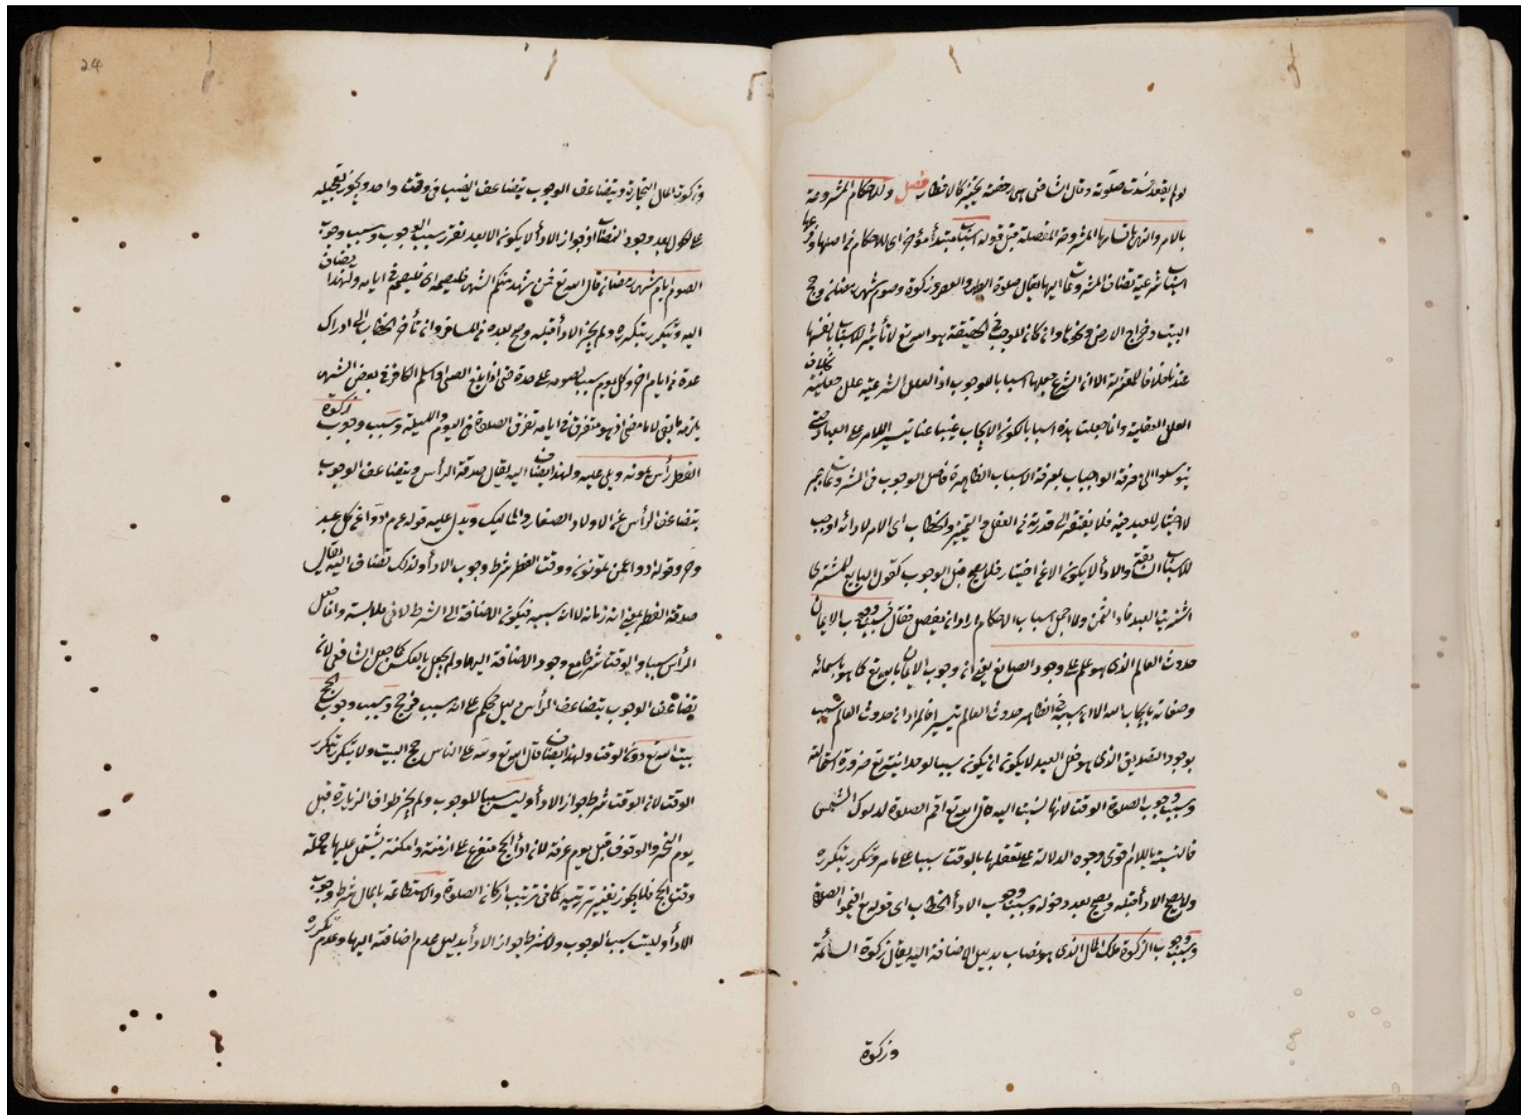 لو لم يقعد فسدت صلوته وقال الشافعي هي رخصة يتخير كالافطار فصل وللاحكام المشروعة
بالامر والنهي باقسامها المشروحة المفصلة قبل قوله اسباب مبتدأ مؤخر اى للاحكام في اصلها وفرعها
اسباب شرعية تضاف المشروعات اليها يقال صلوة الظهر والعصر وزكوة وصوم شهر رمضان وحج
البيت وخراج الارض ونحوها وان كان الموجب في الحقيقة هو الله تع لا تأثير للاسباب بانفسها
عندنا خلافا للمعتزلة الا ان الشرع جعلها اسبابا للوجوب اذ العلل الشرعية علل جعلية بخلاف
العلل العقلية وانما جعلت هذه اسبابا لكون الايجاب غيبا عنا تيسير الامر على العباد حتى
يتوسلوا الى معرفة الواجبات بمعرفة الاسباب الظاهرة فاصل الوجوب في المشروعات جبر
لا اختيار للعبد فيه فلا يفتقر الى قدرته في العقل والتمييز والخطاب اى الامر لادائه اوجب
للاسباب السابقة والادأ لا يكون الا عن اختيار فلا يصح قبل الوجوب كقول البايع للمشترى
اشتريت العبد فاد الثمن ولما اجمل اسباب الاحكام اراد ان يفصل فقال فسبب وجوب الايمان
حدوث العالم الذى هو علم على وجود الصانع يعني ان وجوب الايمان بالله تع كما هو باسمائه
وصفاته بايجاب الله الا ان سببه في الظاهر حدوث العالم تيسيرا فالمراد ان حدوث العالم سبب
لوجود التصديق الذى هو فعل العبد لا يكون ان يكون سببا لوحدانيته تع ضرورة استحالته
وسبب وجوب الصلوة الوقت لانها نسبت اليه قال الله تع اقم الصلوة لدلوك الشمس
فالنسبة باللام اقوى وجوه الدلالة على تعلقها بالوقت سببا على ما مر وتكرر بتكرره
ولا يصح الادأ قبله ويصح بعد دخوله وسبب وجوب الادأ الخطاب اى قوله تع اقيموا الصلوة
وسبب وجوب الزكوة ملك المال الذى هو نصاب بدليل الاضافة اليه يقال زكوة السائمة
وزكوة
24
وزكوة المال التجارة ويتضاعف الوجوب بتضاعف النصب في وقت واحد ويجوز تعجيله
على الحول بعد وجود النصاب اذ جواز الادأ لا يكون الا بعد تقرر سبب الوجوب وسبب وجوب
الصوم ايام شهر رمضان قال الله تع فمن شهد منكم الشهر فليصمه اى فليصم في ايامه ولهذا يضاف
اليه وتكرر بتكرره ولم يجز الادأ قبله وصح بعده في المسافر وان تأخر الخطاب الى ادراك
عدة من ايام اخر وكل يوم سبب لصومه على حدة حتى اذا بلغ الصبى او اسلم الكافر في بعض الشهر
يلزمه ما بقى لا ما مضى اذ هو متفرق في ايامه تفرق الصلوة في اليوم والليلة وسبب وجوب زكوة
الفطر رأس يمونه ويلى عليه ولهذا يضاف اليه يقال صدقة الرأس ويتضاعف الوجوب
بتضاعف الرأس عن الاولاد الصغار والمماليك ويدل عليه قوله عم ادوا عن كل عبد
وحر وقوله ادوا عمن تمونون ووقت الفطر شرط وجوب الادأ ولذلك تضاف اليه يقال
صدقة الفطر بمعنى انه زمانه لا انه سببه فيكون الاضافة الى الشرط لادنى ملابسة وانما جعل
الرأس سببا والوقت شرطا مع وجود الاضافة اليهما ولم يجعل بالعكس كما جعل الشافعى لان
تضاعف الوجوب بتضاعف الرأس دليل محكم على انه سبب فرجح وسبب وجوب الحج
بيت الله تع دون الوقت ولهذا يضاف قال الله تع ولله على الناس حج البيت ولا يتكرر بتكرر
الوقت لان الوقت شرط جواز الادأ وليس سببا للوجوب ولم يجز طواف الزيارة قبل
يوم النحر والوقوف قبل يوم عرفة لان ادأ الحج متفرع على ازمنة وامكنة يشتمل عليها جملة
وقت الحج فلا يجوز تغيير ترتيبه كما في ترتيب اركان الصلوة والاستطاعة بالمال شرط وجوب
الادأ وليست سبب الوجوب ولا شرط جواز الادأ بدليل عدم اضافته اليها وعدم تكرره